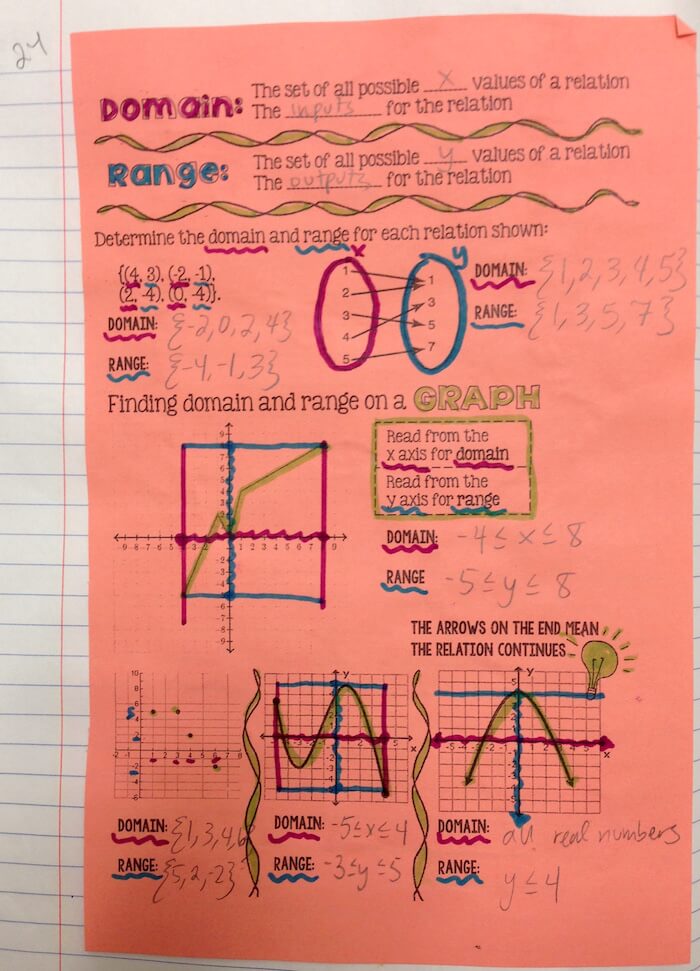 24
Domain: The set of all possible x values of a relation
The inputs for the relation
Range: The set of all possible y values of a relation
The outputs for the relation
Determine the domain and range for each relation shown:
{(4, 3), (-2, -1),
(2, -4), (0, -4)}.
DOMAIN: {-2,0,2,4}
RANGE: {-4,-1,3}
x y
1 1
2 3
3 5
4 7
5
DOMAIN: {1,2,3,4,5}
RANGE: {1,3,5,7}
Finding domain and range on a GRAPH
Read from the
x axis for domain
Read from the
y axis for range
DOMAIN: -4 ≤ x ≤ 8
RANGE -5 ≤ y ≤ 8
THE ARROWS ON THE END MEAN
THE RELATION CONTINUES
DOMAIN: {1,3,4,6
RANGE: {5,2,-2}
DOMAIN: -5≤x≤4
RANGE: -3≤y≤5
DOMAIN: all real numbers
RANGE: y ≤ 4